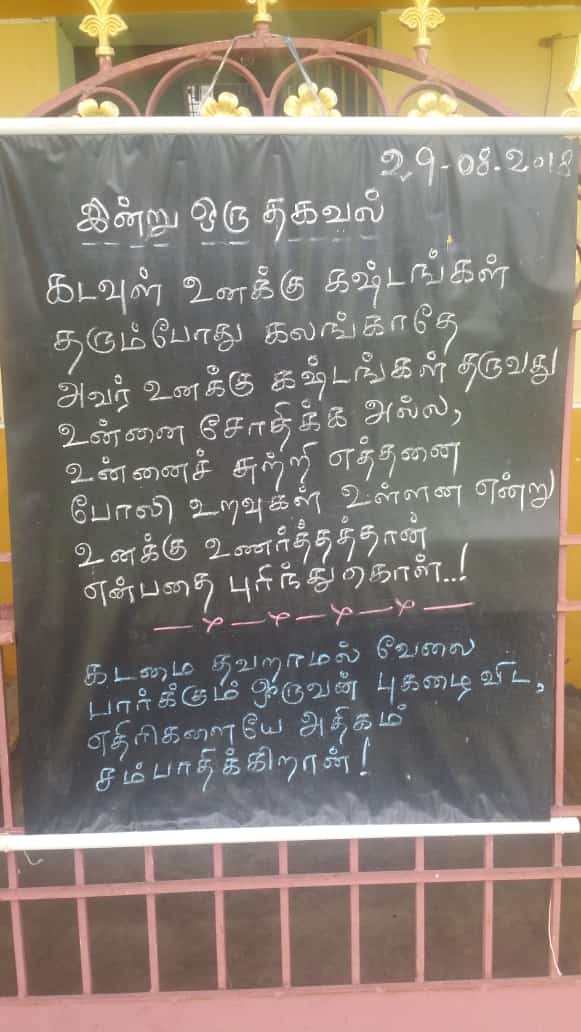 29-08-2018
இன்று ஒரு தகவல்
கடவுள் உனக்கு கஷ்டங்கள்
தரும்போது கலங்காதே
அவர் உனக்கு கஷ்டங்கள் தருவது
உன்னை சோதிக்க அல்ல,
உன்னைச் சுற்றி எத்தனை
போலி உறவுகள் உள்ளன என்று
உனக்கு உணர்த்தத்தான்
என்பதை புரிந்து கொள்..!
கடமை தவறாமல் வேலை
பார்க்கும் ஒருவன் புகழை விட,
எதிரிகளையே அதிகம்
சம்பாதிக்கிறான்!